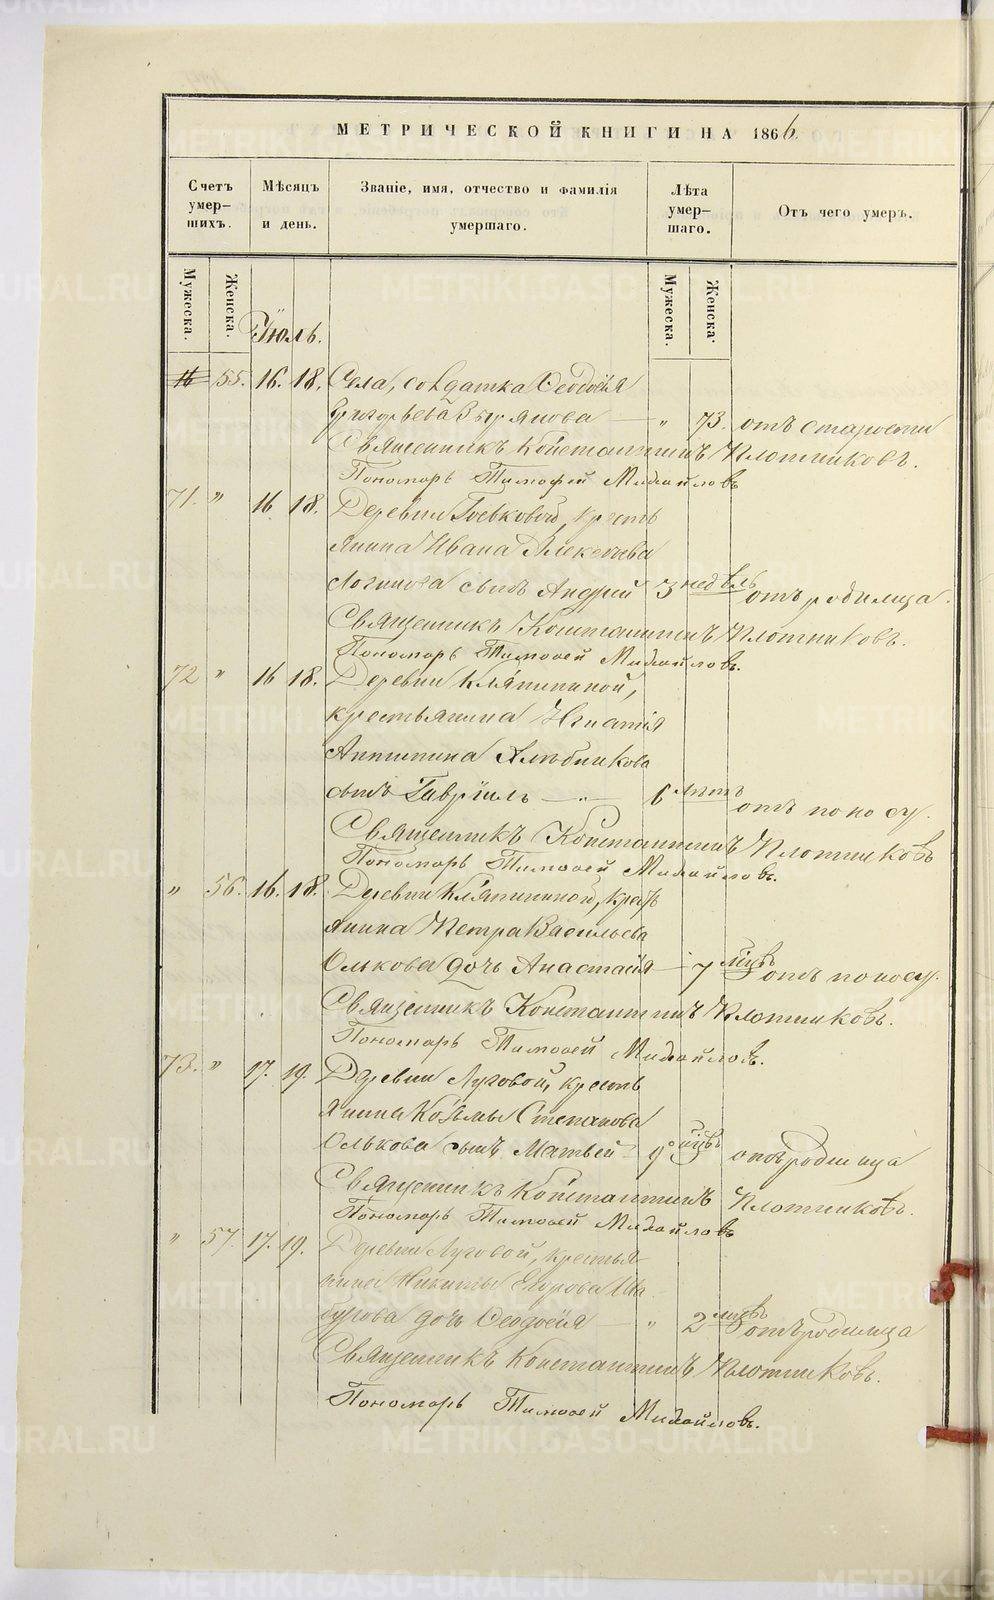 МЕТРИЧЕСКОЙ КНИГИ НА 1866
Счетъ умер–шихъ.
Мѣсяцъ и день.
Званіе, имя, отчество и фамилія умершаго.
Лѣта умер–шаго.
Отъ чего умеръ.
Мужеска.
Женска.
Мужеска.
Женска.
Іюль.
55. 16. 18. Села, солдатка Ѳеодосія
Григорьева Зырянова — „ 73. отъ старости
Священникъ Константинъ Плотниковъ.
Пономарь Тимофей Михайловъ
71. „ 16 18. Деревни, кресть
янина Ивана Алексѣева
Логинова сынъ Андрей 3 недѣль отъ родимца.
Священникъ Константинъ Плотниковъ.
Пономарь Тимоѳей Михайловъ.
72 „ 16 18. Деревни Кляпининой,
крестьянина Игнатія
Антипина
сынъ Гавріилъ — „ — 6 лѣтъ отъ поносу.
Священникъ Константинъ Плотниковъ
Пономарь Тимоѳей Михайловъ.
„ 56. 16. 18. Деревни Кляпининой, кресть
янина Петра Васильева
Олькова дочь Анастасія — 7 мѣсцъ отъ поносу.
Священникъ Константинъ Плотниковъ.
Пономарь Тимоѳей Михайловъ.
73. „ 17. 19. Деревни Луговой, кресть
янина Козьмы Степанова
Олькова сынъ Матвей 9 мѣсцъ отъ родимца
Священникъ Константинъ Плотниковъ.
Пономарь Тимоѳей Михайловъ
„ 57. 17. 19. Деревни Луговой, крестья
нина Никиты Егорова Ша
бурова дочь Ѳеодосія — „ 2 мѣсцъ отъ родимца
Священникъ Константинъ Плотниковъ.
Пономарь Тимоѳей Михайловъ.
METRIKI.GASO-URAL.RU